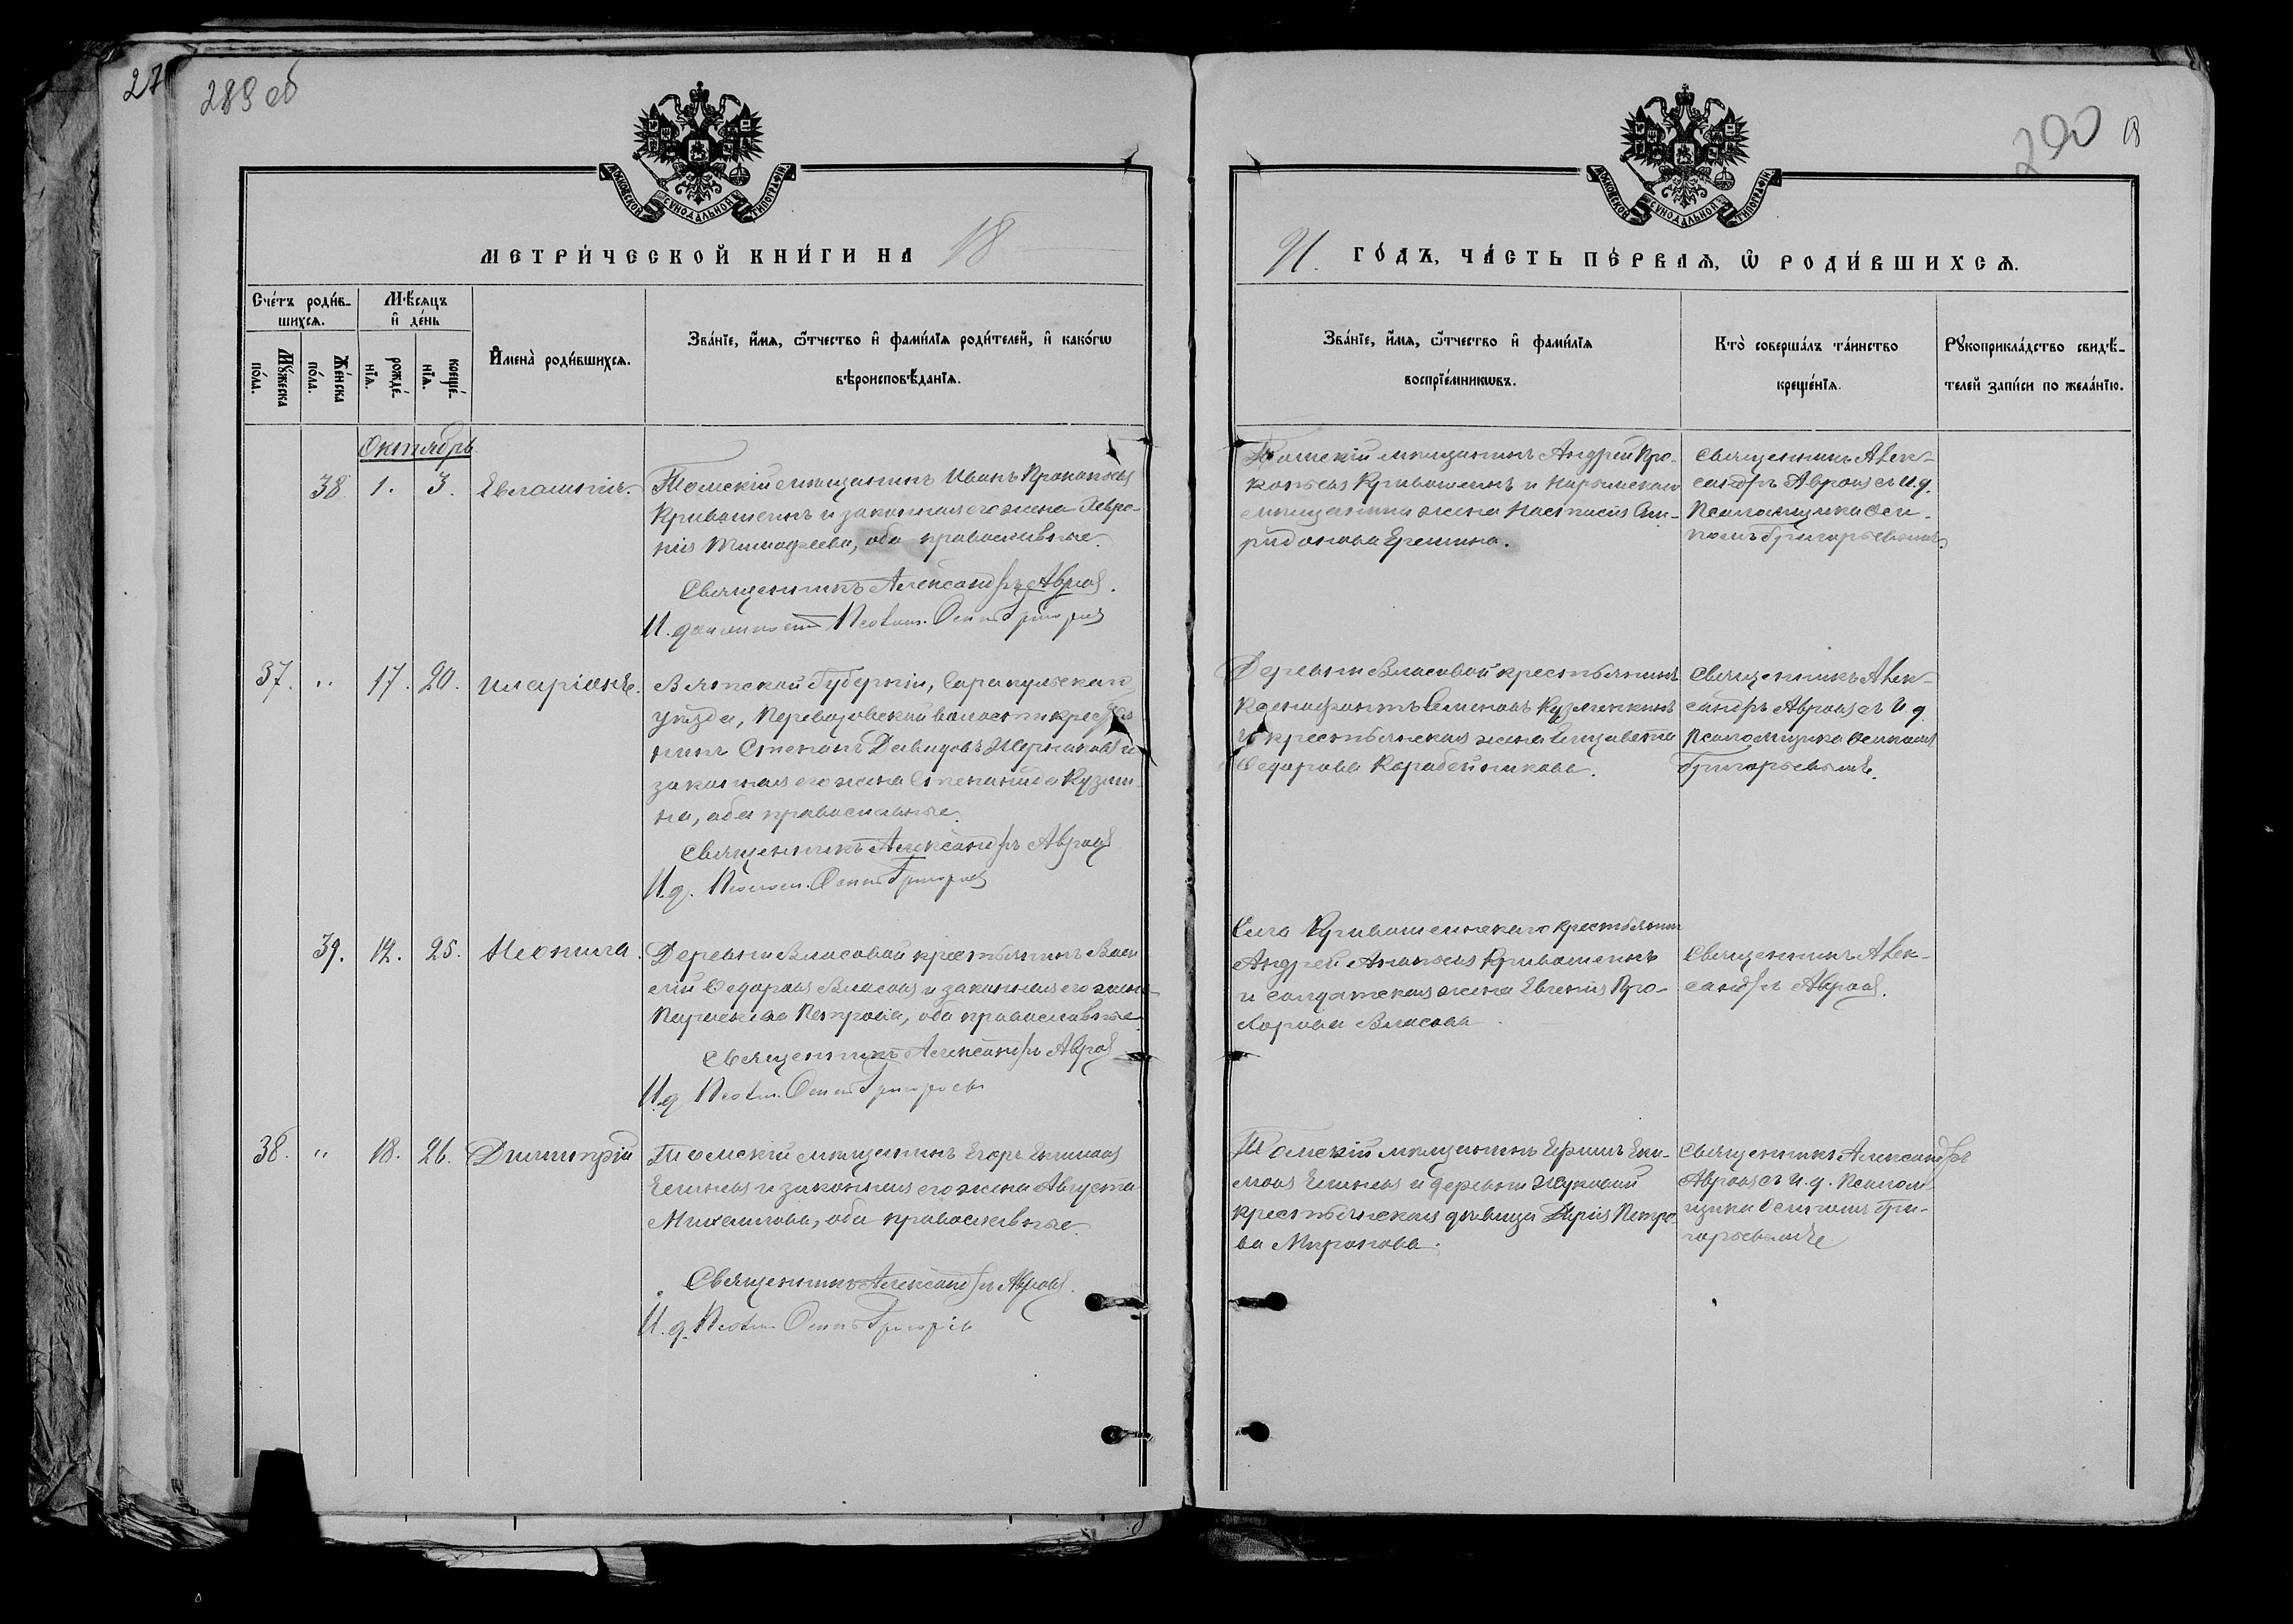 27
289 об
МОСКОВСКОЙ СѴНОДАЛЬНОЙ ТИПОГРАФІИ
МЕТРИ́ЧЕСКОЙ КНИ́ГИ НА 18
Сче́тъ роди́в-
шихсѧ.
Мѣ́сяцъ
и҆ де́нь
Мꙋ́жеска
по́ла.
Же́нска
по́ла.
рожде́-
нїѧ.
креще́-
нїѧ.
И҆мена̀ роди́вшихсѧ.
Зва́нїе, и҆́мѧ, ѻ҆́тчество и҆ фами́лїѧ роди́телей, и҆ како́гѡ
вѣроисповѣ́данїѧ.
Октябрь
38 1. 3. Евлампія. Томскій мѣщанинъ Иванъ Прокопьевъ
Кривошеинъ и законная его жена Февро-
нія Тимофеева, оба православные.
Священникъ Александръ Авровъ.
И. должность Псалом. Осипъ Григорьев
37. " 17. 20. Иларіонъ. Вятской Губерніи, Сарапульскаго
уѣзда, Перевозовской волости крестья
нинъ Степанъ Давидовъ и
законная его жена Степанида Кузьми-
на, оба православные.
Священникъ Александръ Авровъ
И.д. Псалом. Осипъ Григорьев
39. 12. 25. Неонила. Деревни Власовой крестьянинъ Васи
лій Ѳедоровъ Власовъ и законная его жена
Параскева Петрова, оба православные.
Священникъ Александръ Авровъ
И.д. Псалом. Осипъ Григорьевъ
38. " 18. 26. Димитрій Томскій мѣщанинъ Егоръ Екимовъ
Еминевъ и законная его жена Августа
Михаилова, оба православные.
Священникъ Александръ Авровъ.
И.д. Псалом. Осипъ Григорьев
290
МОСКОВСКОЙ СѴНОДАЛЬНОЙ ТИПОГРАФІИ
91. ГО́ДЪ, ЧА́СТЬ ПЕ́РВАѦ, Ѡ҆ РОДИ́ВШИХСѦ.
Зва́нїе, и҆́мѧ, ѻ҆́тчество и҆ фами́лїѧ
воспрїе́мникѡвъ.
Кто̀ соверша́лъ та́инство
креще́нїѧ.
Рꙋкоприкла́дство свидѣ́-
телей за́писи по жела́нїю.
Томскій мѣщанинъ Андрей Про-
копьевъ Кривошеинъ и Нарымскаго
мѣщанина жена Настасія Спи-
ридонова Еремина.
Священникъ Алек-
сандръ Авровъ съ И.д.
Псаломщика Оси-
помъ Григорьевымъ.
Деревни Власовой крестьянинъ
Ксенофонтъ Семеновъ Кузменкинъ
и крестьянская жена Елизавета
Ѳедорова Коробейникова.
Священникъ Алек-
сандръ Авровъ съ И.д.
Псаломщика Осипомъ
Григорьевымъ.
Села Кривошеинскаго крестьянинъ
Андрей Ананьевъ Кривошеинъ
и солдатская жена Евгенія Про-
хорова Власова.
Священникъ Алек-
сандръ Авровъ.
Томскій мѣщанинъ Ефимъ Еки-
мовъ Еминевъ и деревни Жуковой
крестьянская дѣвица Дарія Петро-
ва Миронова.
Священникъ Александръ
Авровъ съ И.д. Псалом-
щика Осипомъ Гри-
горьевымъ